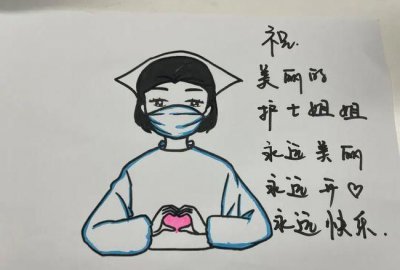 祝
美丽的
护士姐姐
永远美丽
永远开♡
永远快乐.